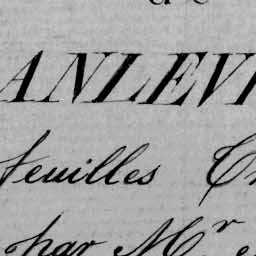 ANLEV
feuilles
par M.r